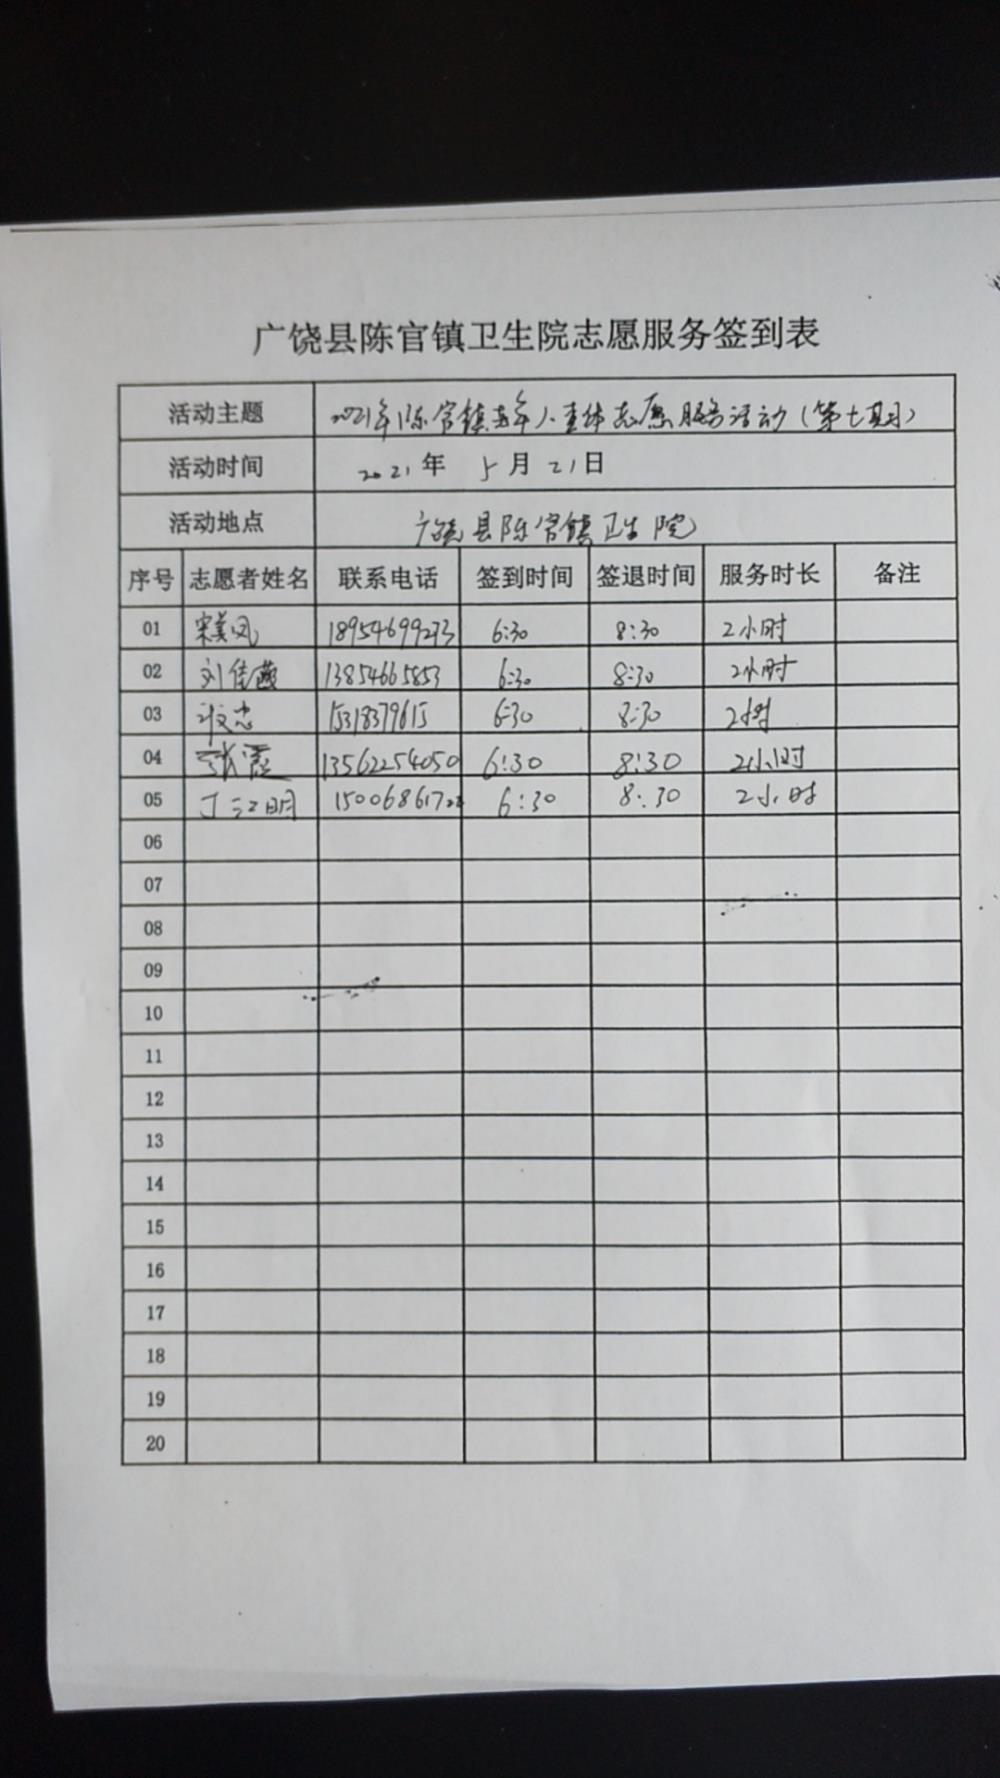 广饶县陈官镇卫生院志愿服务签到表
活动主题 2021年陈官镇老年人查体志愿服务活动(第七期)
活动时间 2021年 5月21日
活动地点 广饶县陈官镇卫生院
序号 志愿者姓名 联系电话 签到时间 签退时间 服务时长 备注
01 宋美凤 18954699273 6:30 8:30 2小时
02 刘佳燕 13854665853 6:30 8:30 2小时
03 15318379615 6:30 8:30 2小时
04 张霞 13562254050 6:30 8:30 2小时
05 丁江明 6:30 8:30 2小时
06
07
08
09
10
11
12
13
14
15
16
17
18
19
20